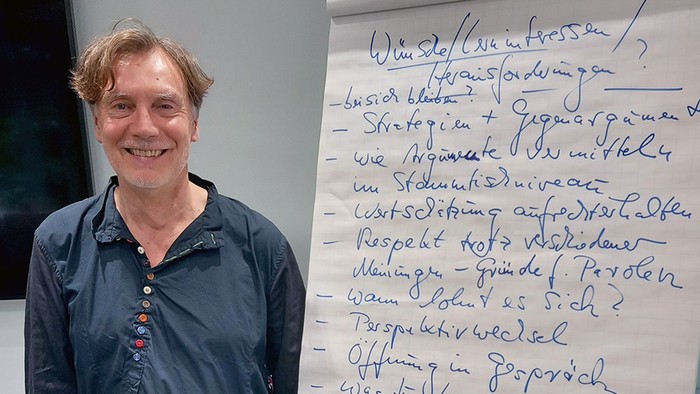 Wünsche/Lerninteressen/
Herausforderungen ?
- bei sich bleiben?
- Strategien + Gegenargument
- wie Argumente vermitteln
im Stammtischniveau
- Wertschätzung aufrechterhalten
- Respekt trotz verschiedener
Meinungen - Gründe f. Parolen
- wann lohnt es sich?
- Perspektivwechsel
- Öffnung im Gespräch